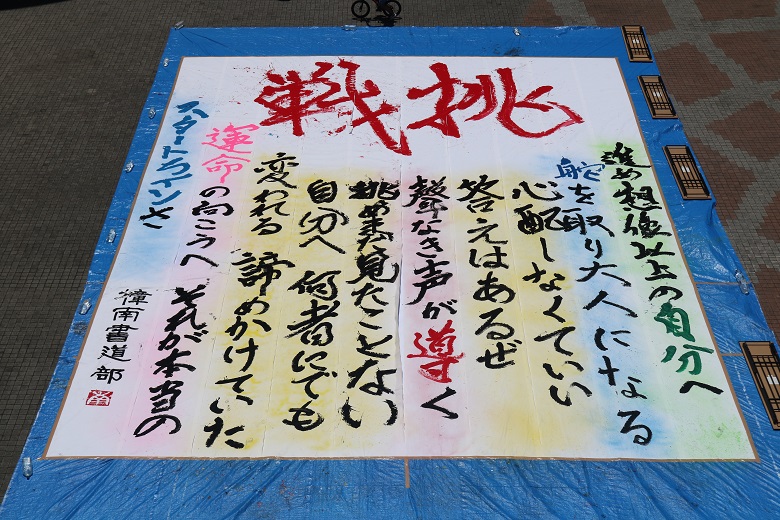 挑戦
進め想像以上の自分へ
舵を取り大人になる
心配しなくていい
答えはあるぜ
聲なき声が導く
挑めまだ見たことない
自分へ 何者にでも
変われる 諦めかけていた
運命の向こうへ それが本当の
スタートラインさ
樟南書道部